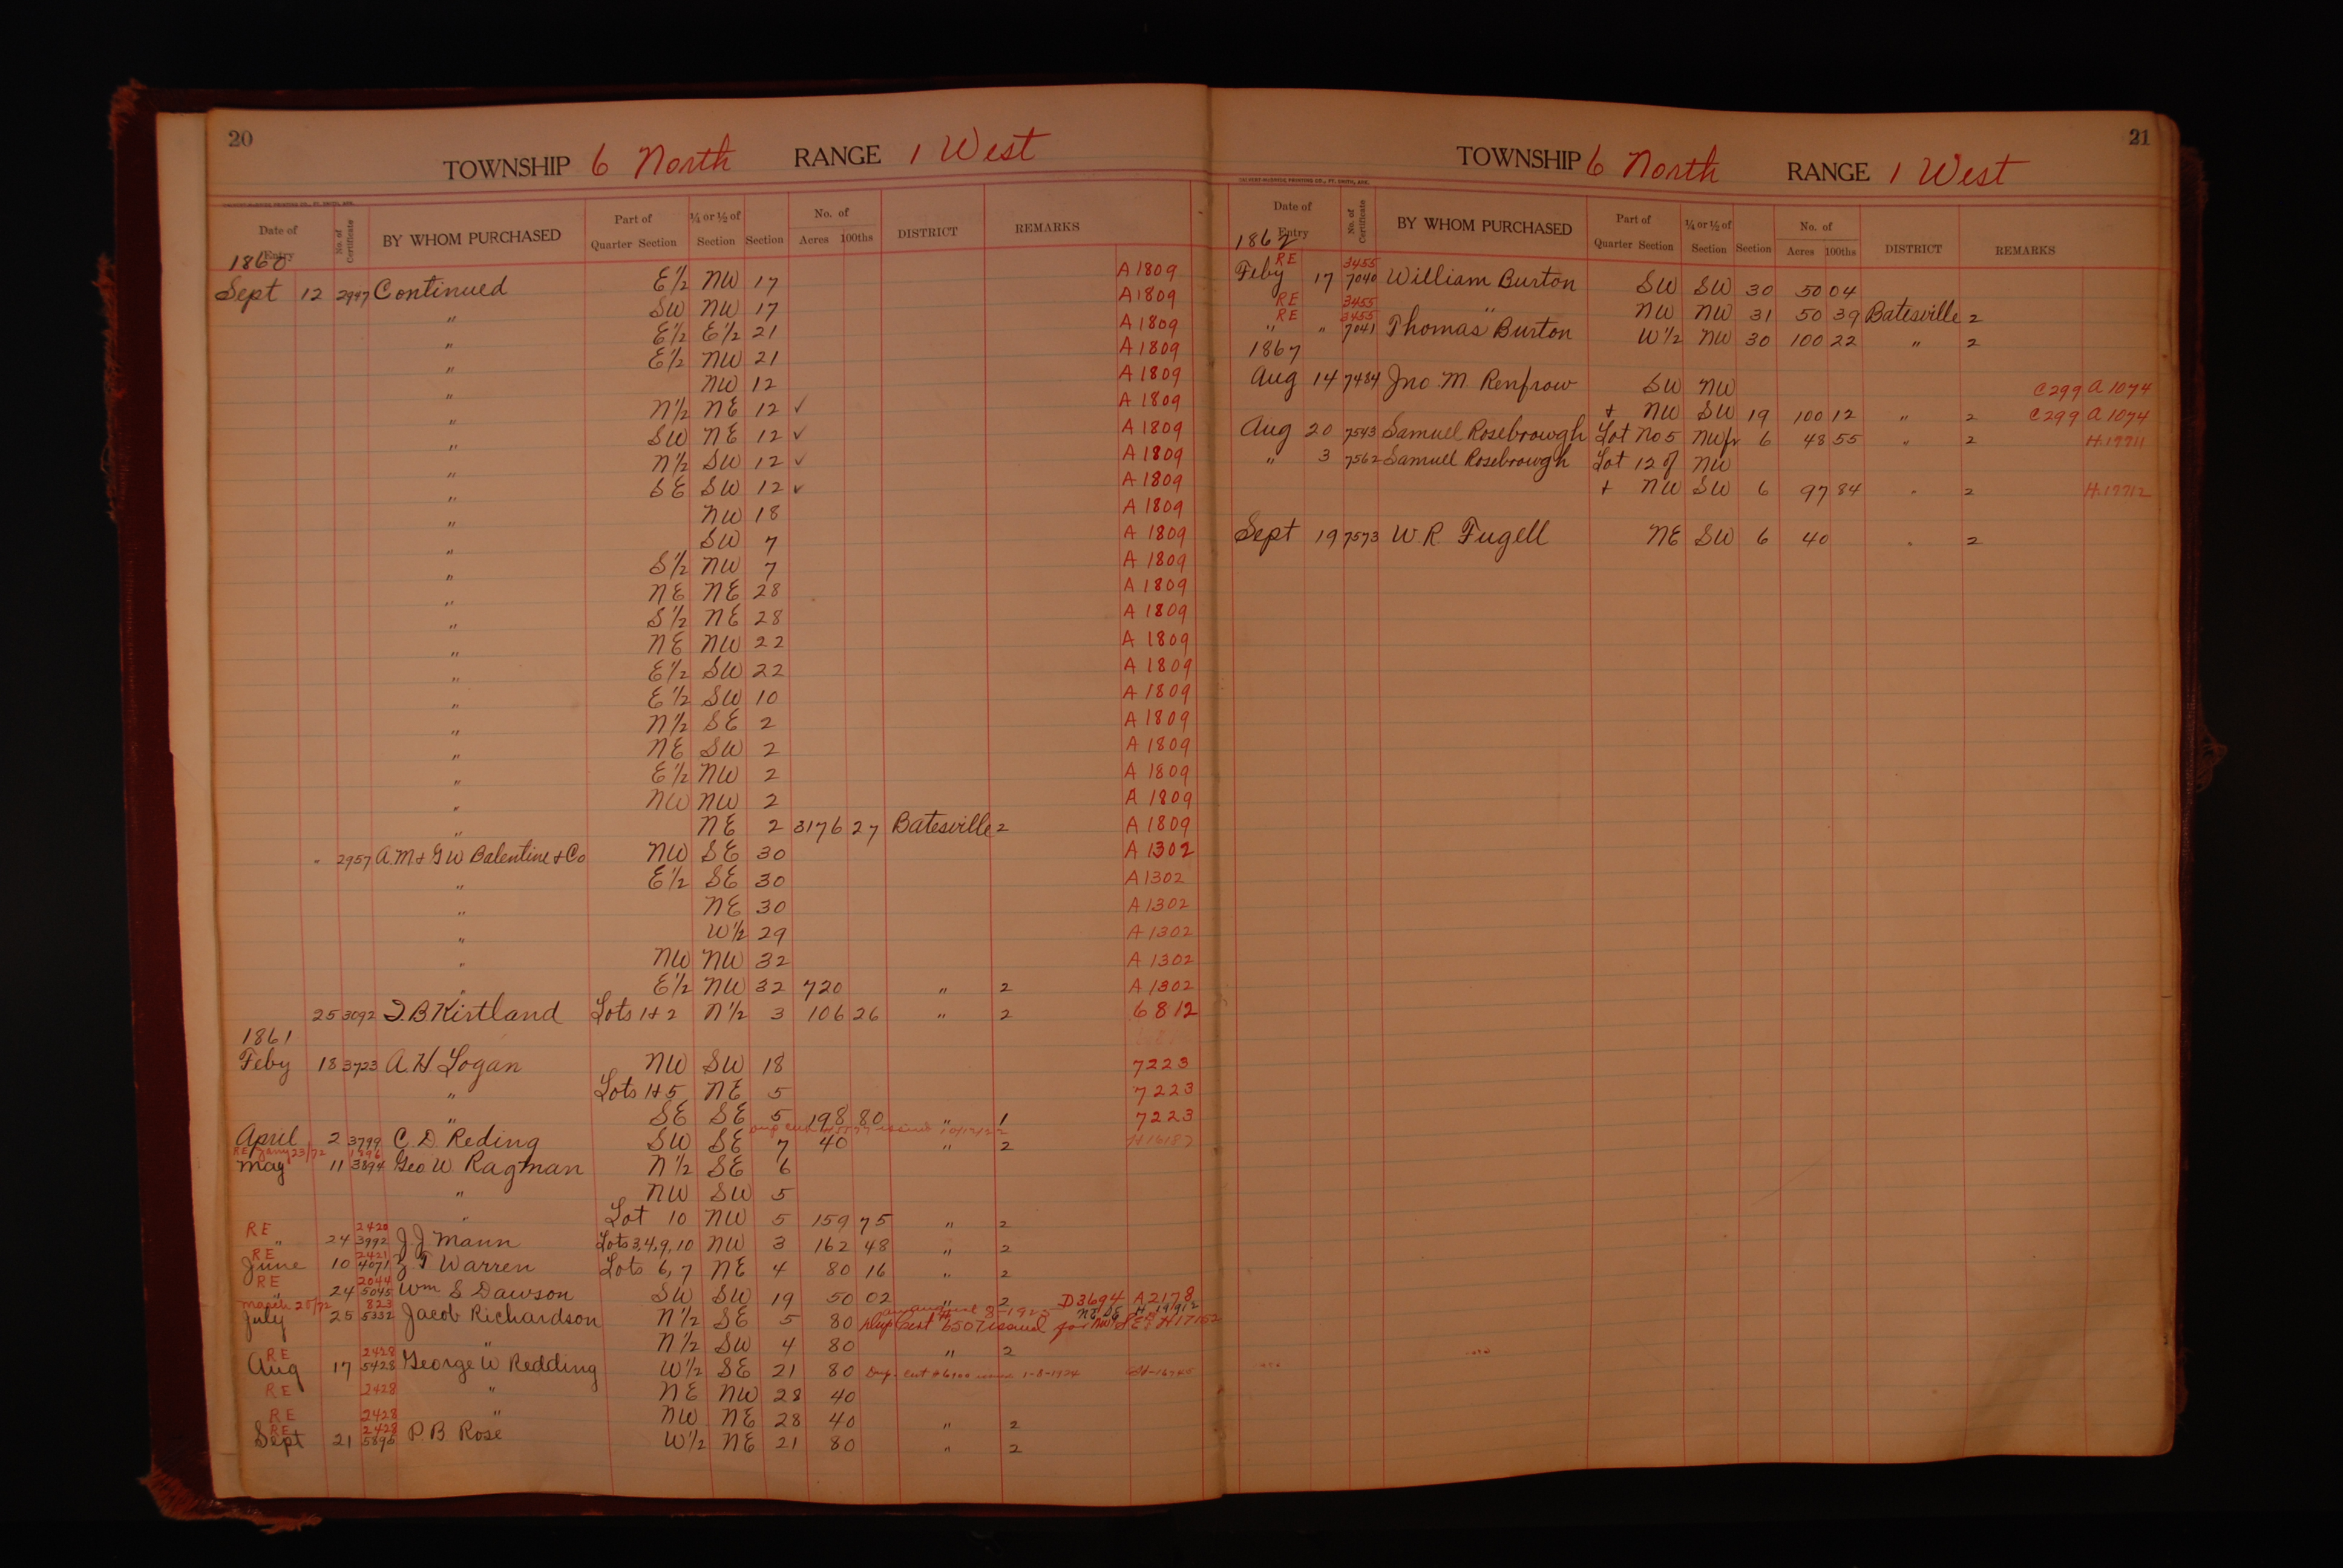 20
TOWNSHIP 6 North RANGE 1 West
CALVERT-McBRIDE PRINTING CO., FT. SMITH, ARK.
Date of Entry No. of Certificate BY WHOM PURCHASED Part of Quarter Section ¼ or ½ of Section Section No. of Acres 100ths DISTRICT REMARKS
1860
Sept 12 2947 Continued E½ NW 17 A1809
" SW NW 17 A1809
" E½ E½ 21 A1809
" E½ NW 21 A1809
" NW 12 A1809
" N½ NE 12 ✓ A1809
" SW NE 12 ✓ A1809
" N½ SW 12 ✓ A1809
" SE SW 12 ✓ A1809
" NW 18 A1809
" SW 7 A1809
" S½ NW 7 A1809
" NE NE 28 A1809
" S½ NE 28 A1809
" NE NW 22 A1809
" E½ SW 22 A1809
" E½ SW 10 A1809
" N½ SE 2 A1809
" NE SW 2 A1809
" E½ NW 2 A1809
" NW NW 2 A1809
" NE 2 3176 27 Batesville 2 A1809
" 2957 A.M & GW Balentine & Co NW SE 30 A1302
" E½ SE 30 A1302
" NE 30 A1302
" W½ 29 A1302
" NW NW 32 A1302
" E½ NW 32 720 " 2 A1302
25 3092 J.B Kirtland Lots 1&2 N½ 3 106 26 " 2 6812
1861
Feby 18 3723 A.H Logan NW SW 18 7223
" Lots 1&5 NE 5 7223
" SE SE 5 198 80 " 1 7223
April 2 3799 C.D. Reding SW SE 7 40 " 2 H16187
RE Jany 23/72 1296
May 11 3894 Geo W. Ragman N½ SE 6
" NW SW 5
" Lot 10 NW 5 159 75 " 2
RE 2420
" 24 3992 J.J Mann Lots 3,4,9,10 NW 3 162 48 " 2
RE 2421
June 10 4071 T Warren Lots 6,7 NE 4 80 16 " 2
RE 2044
" 24 5045 Wm S Dawson SW SW 19 50 02 " 2 D3694 A2178
March 25/72 823 NE SE H 19912
July 25 5332 Jacob Richardson N½ SE 5 80 Dup Cert 6507 issued for NW SE H17152
" N½ SW 4 80 " 2
RE 2428
Aug 17 5428 George W Redding W½ SE 21 80 Dup. Cert # 6900 1-8-1924
RE 2428 " NE NW 28 40
RE 2428 " NW NE 28 40 " 2
RE 2428
Sept 21 5896 P.B. Rose W½ NE 21 80 " 2
21
TOWNSHIP 6 North RANGE 1 West
CALVERT-McBRIDE PRINTING CO., FT. SMITH, ARK.
Date of Entry No. of Certificate BY WHOM PURCHASED Part of Quarter Section ¼ or ½ of Section Section No. of Acres 100ths DISTRICT REMARKS
1862
RE 3455
Feby 17 7040 William Burton SW SW 30 50 04
RE 3455 " NW NW 31 50 39 Batesville 2
RE 3455
" " 7041 Thomas Burton W½ NW 30 100 22 " 2
1867
Aug 14 7484 Jno. M. Renfrow SW NW C299 A1074
+ NW SW 19 100 12 " 2 C299 A1074
Aug 20 7543 Samuel Rosebrowgh Lot No 5 NWfr 6 48 55 " 2 H.17711
" 3 7562 Samuel Rosebrowgh Lot 12 of NW
+ NW SW 6 97 84 " 2 H.17712
Sept 19 7573 W.R Fugell NE SW 6 40 " 2